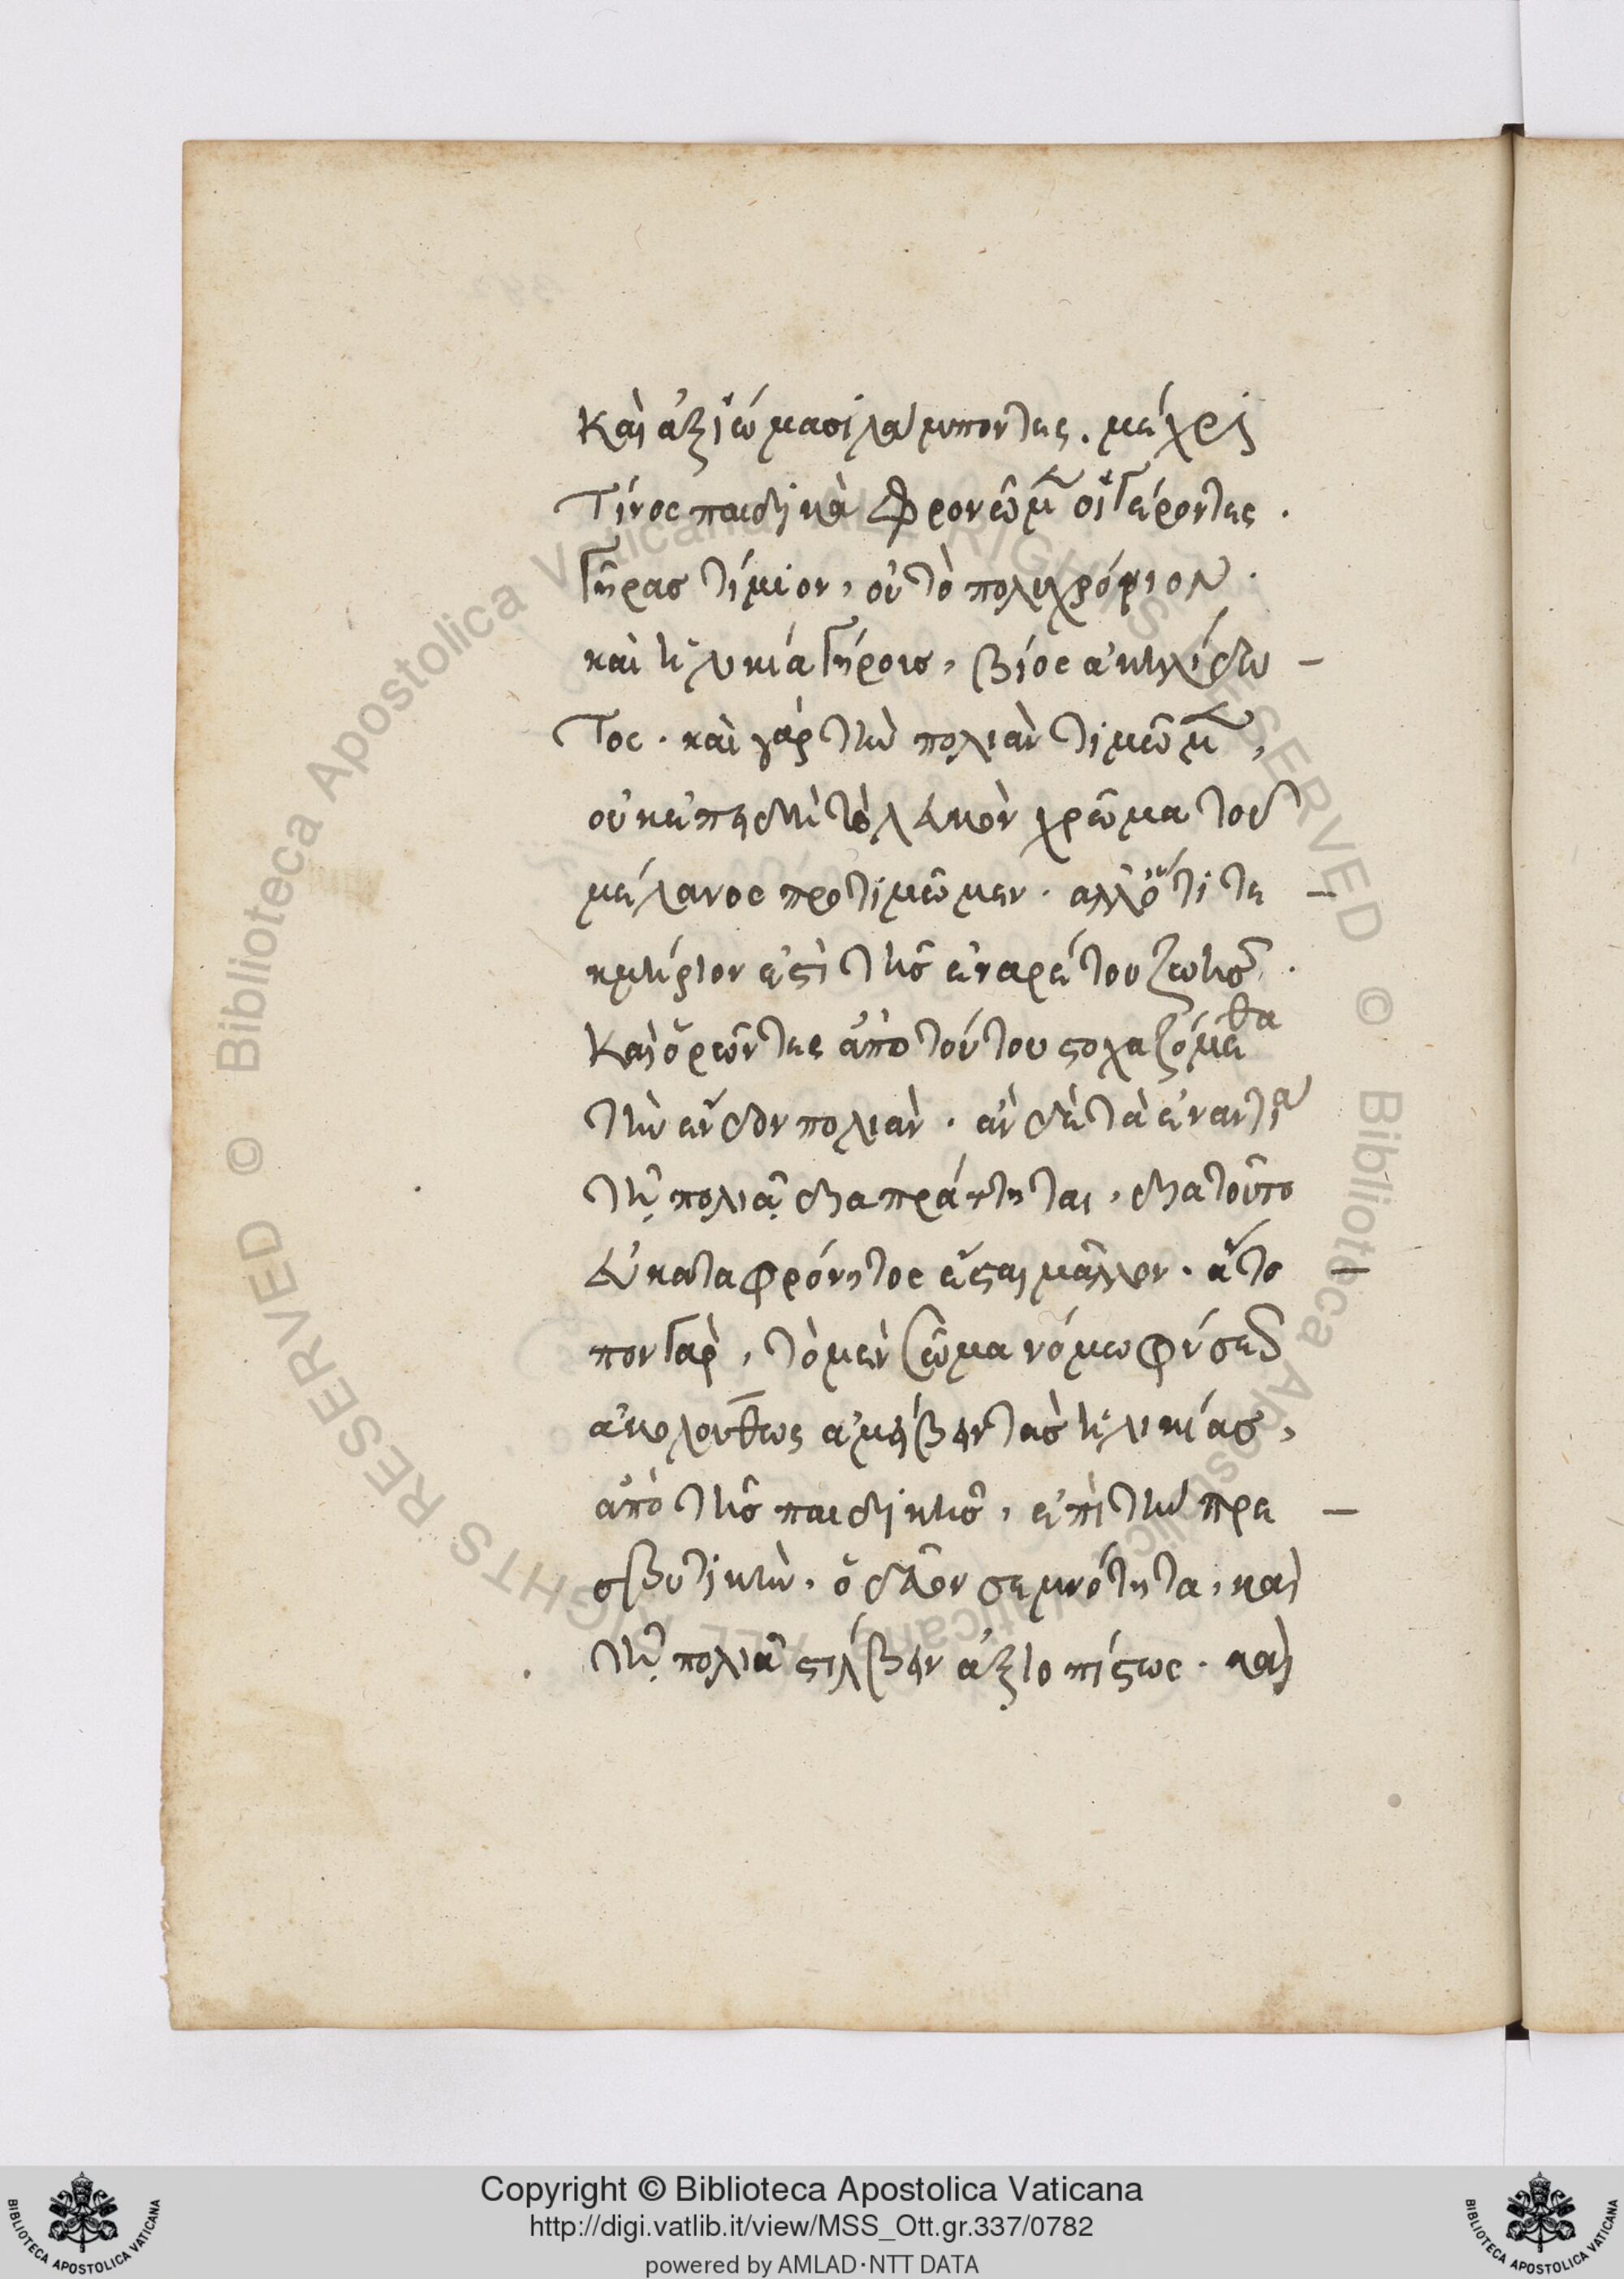 Καὶ ἀξιώμασι λάμποντες. μέχρι
Τίνος παιδικὰ φρονῶμ̃ οἱ γέροντες.
Γῆρας τίμιον, οὐ τὸ πολυχρόνιον.
καὶ ἡλικία γήρους, βίος ἀκηλίδω –
Τος. καὶ γὰρ τὴν πολιὰν τιμῶμ̃,
οὐκ ἐπειδὴ τὸ λευκὸν χρῶμα τοῦ
μέλανος προτιμῶμεν. ἀλλ' ὅτι τε –
κμήριον ἐστὶ τῆς ἐναρέτου ζωῆς.
Καὶ ὁρῶντες ἀπὸ τούτου στοχαζόμεθα
τὴν ἔνδον πολιὰν. ἂν δὲ τὰ ἐναντία
τῇ πολιᾷ διαπράττηται, διατοῦτο
εὐκαταφρόνητος ἔσται μᾶλλον. ἄτο –
πον Γὰρ, τὸ μὲν σῶμα νόμω φύσεως
ἀκολουθως ἀμείβειν τὰς ἡλικίας,
ἀπὸ τῆς παιδικῆς, ἐπὶ τὴν πρε –
σβυτικὴν. ὁδεῦον σεμνότητα, καὶ
τῇ πολιᾷ στίλβειν ἀξιοπίστως. καὶ
Copyright © Biblioteca Apostolica Vaticana
http://digi.vatlib.it/view/MSS_Ott.gr.337/0782
powered by AMLAD·NTT DATA
BIBLIOTECA APOSTOLICA VATICANA
BIBLIOTECA APOSTOLICA VATICANA
© Biblioteca Apostolica Vaticana ALL RIGHTS RESERVED
© Biblioteca Apostolica Vaticana ALL RIGHTS RESERVED